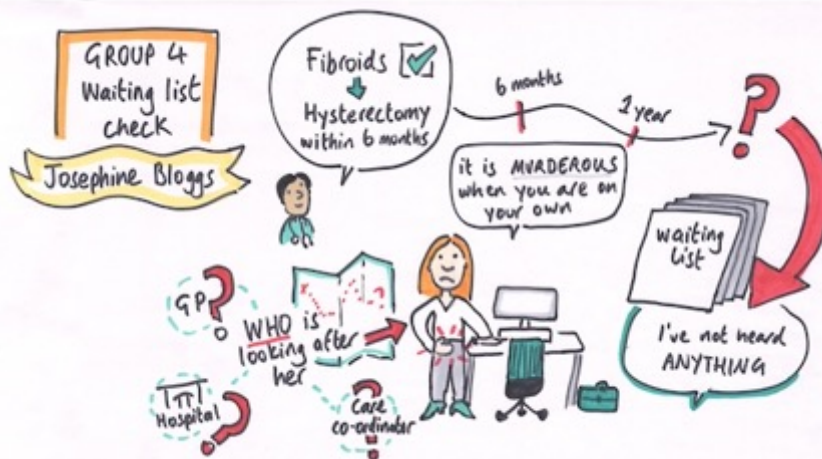 GROUP 4
Waiting list
check
Josephine Bloggs
Fibroids
Hysterectomy
within 6 months
6 months
1 year
?
it is MURDEROUS
when you are on
your own
waiting
list
I've not heard
ANYTHING
GP ?
WHO is
looking after
her
Hospital ?
Care
co-ordinator
?